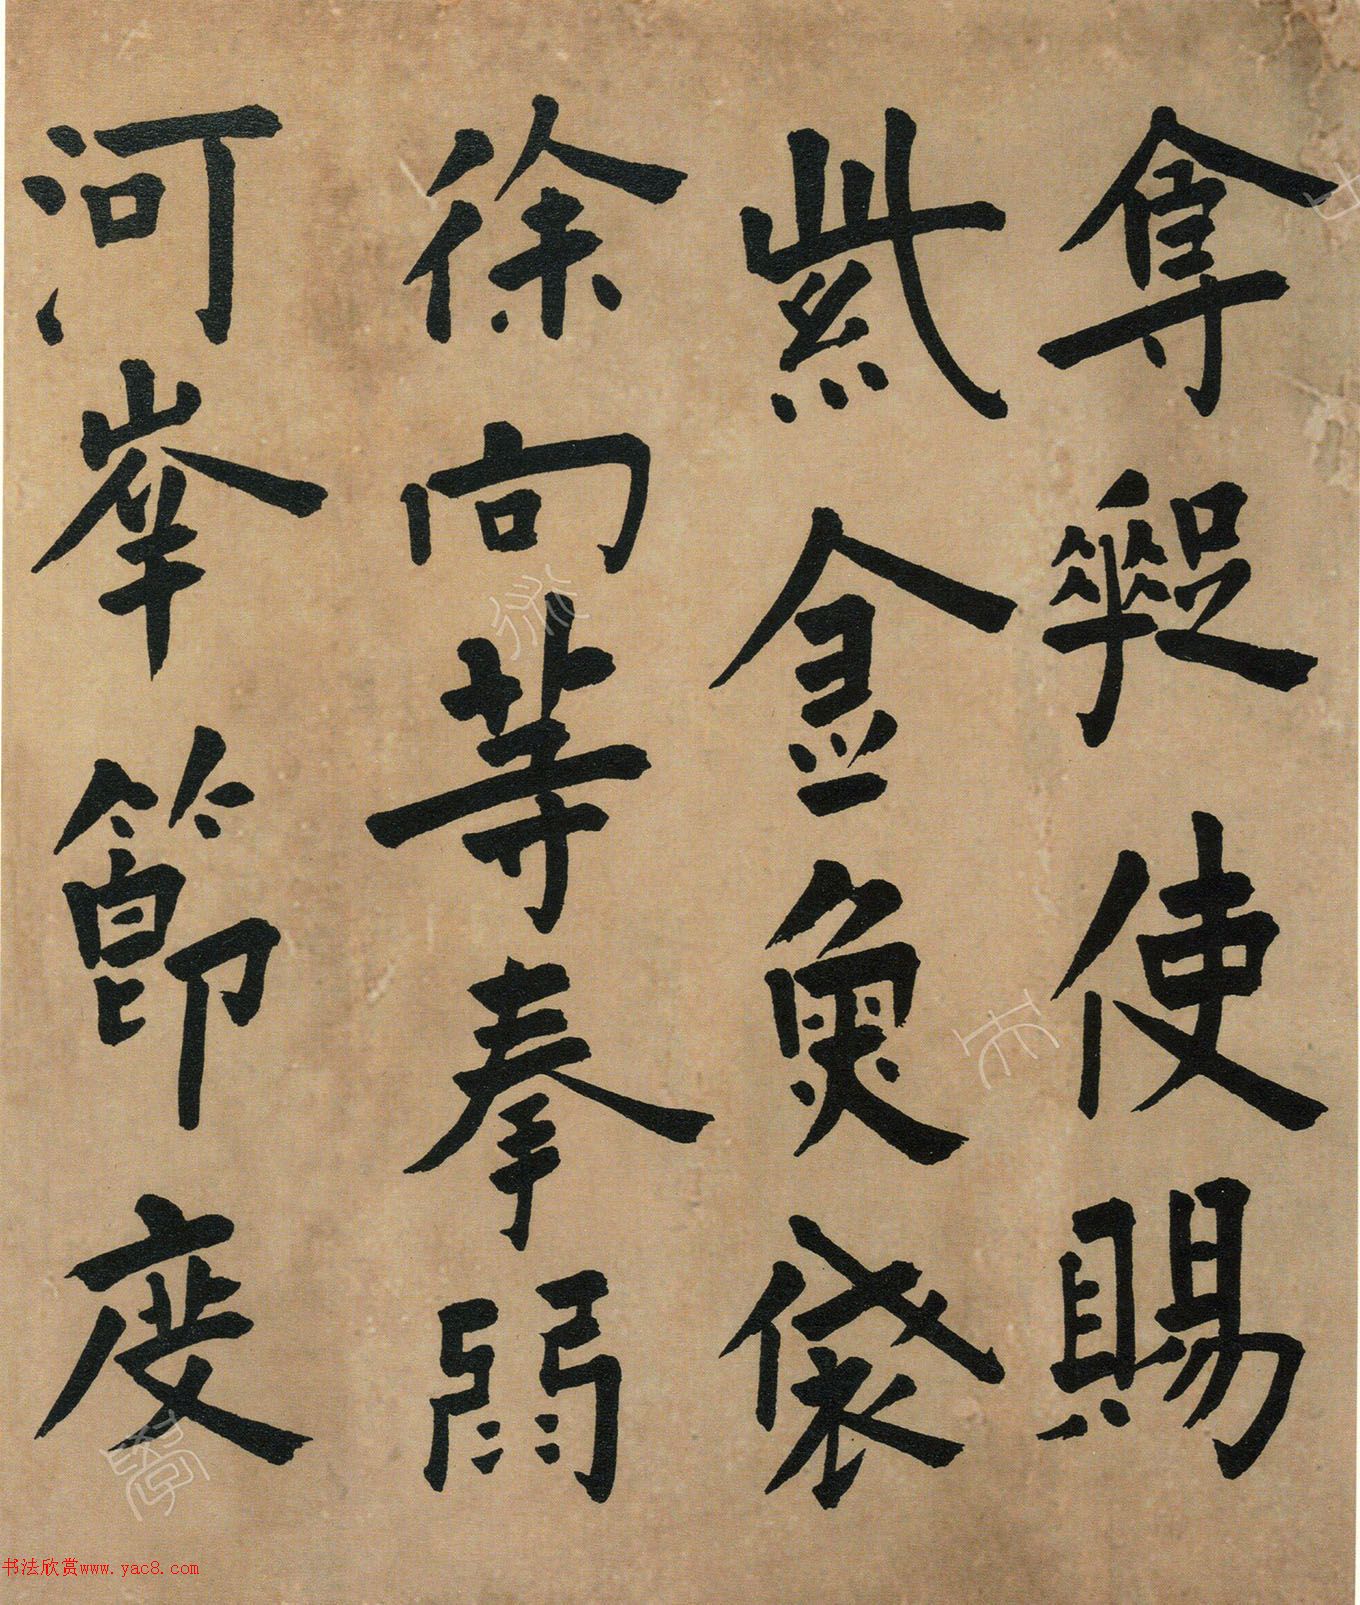 奪使賜
紫金魚袋
徐向等奉弱
河峯節度
书法欣赏www.yac8.com